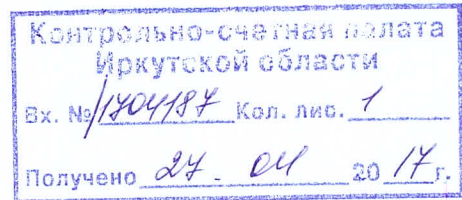 Контрольно-счетная палата
Иркутской области
Вх. № 1704187 Кол. лис. 1
Получено 27. 04 20 17 г.